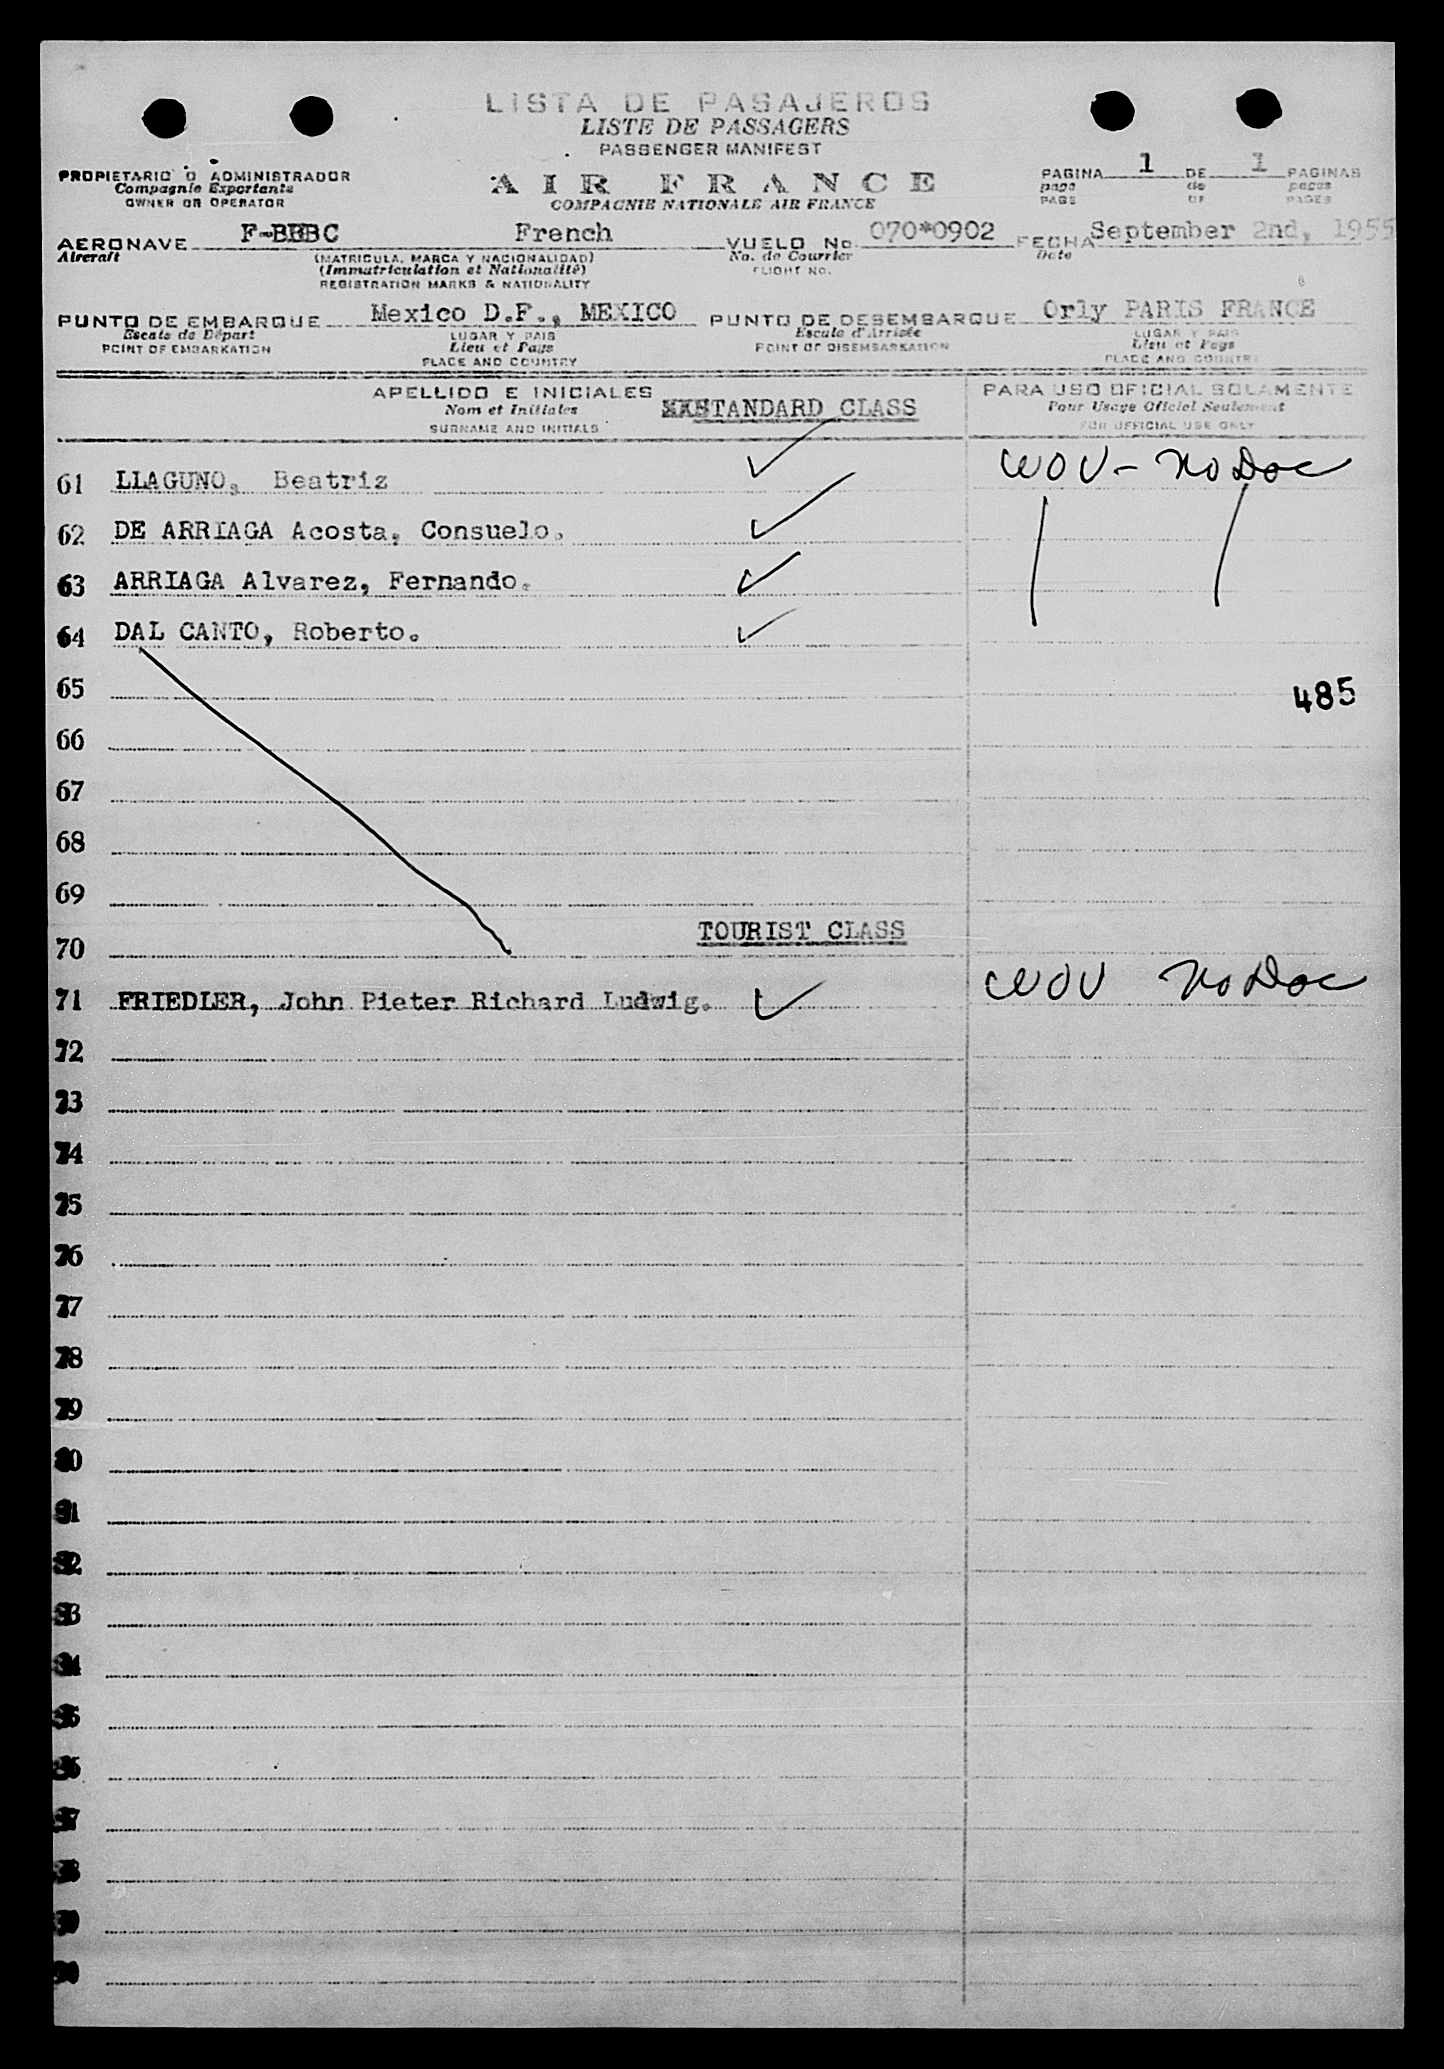 LISTA DE PASAJEROS
LISTE DE PASSAGERS
PASSENGER MANIFEST
PROPIETARIO O ADMINISTRADOR
Compagnie Exportante
OWNER OR OPERATOR
AIR FRANCE
COMPAGNIE NATIONALE AIR FRANCE
PAGINA 1 DE 1 PAGINAS
page de pages
PAGE OF PAGES
AERONAVE F-BBBC French VUELO No. 070*0902 FECHA September 2nd, 1955
Aircraft (MATRICULA, MARCA Y NACIONALIDAD) No. de Courrier Date
(Immatriculation et Nationalité) FLIGHT NO.
REGISTRATION MARKS & NATIONALITY
PUNTO DE EMBARQUE Mexico D.F., MEXICO PUNTO DE DESEMBARQUE Orly PARIS FRANCE
Escale de Départ LUGAR Y PAIS Escale d'Arrivée LUGAR Y PAIS
POINT OF EMBARKATION Lieu et Pays POINT OF DISEMBARKATION Lieu et Pays
PLACE AND COUNTRY PLACE AND COUNTRY
APELLIDO E INICIALES STANDARD CLASS PARA USO OFICIAL SOLAMENTE
Nom et Initiales Pour Usage Oficiel Seulement
SURNAME AND INITIALS FOR OFFICIAL USE ONLY
61 LLAGUNO, Beatriz WOV - No Doc
62 DE ARRIAGA Acosta, Consuelo.
63 ARRIAGA Alvarez, Fernando.
64 DAL CANTO, Roberto.
65 485
66
67
68
69
TOURIST CLASS
70
71 FRIEDLER, John Pieter Richard Ludwig. WOV No Doc
72
73
74
75
76
77
78
79
80
81
82
83
84
85
86
87
88
89
90